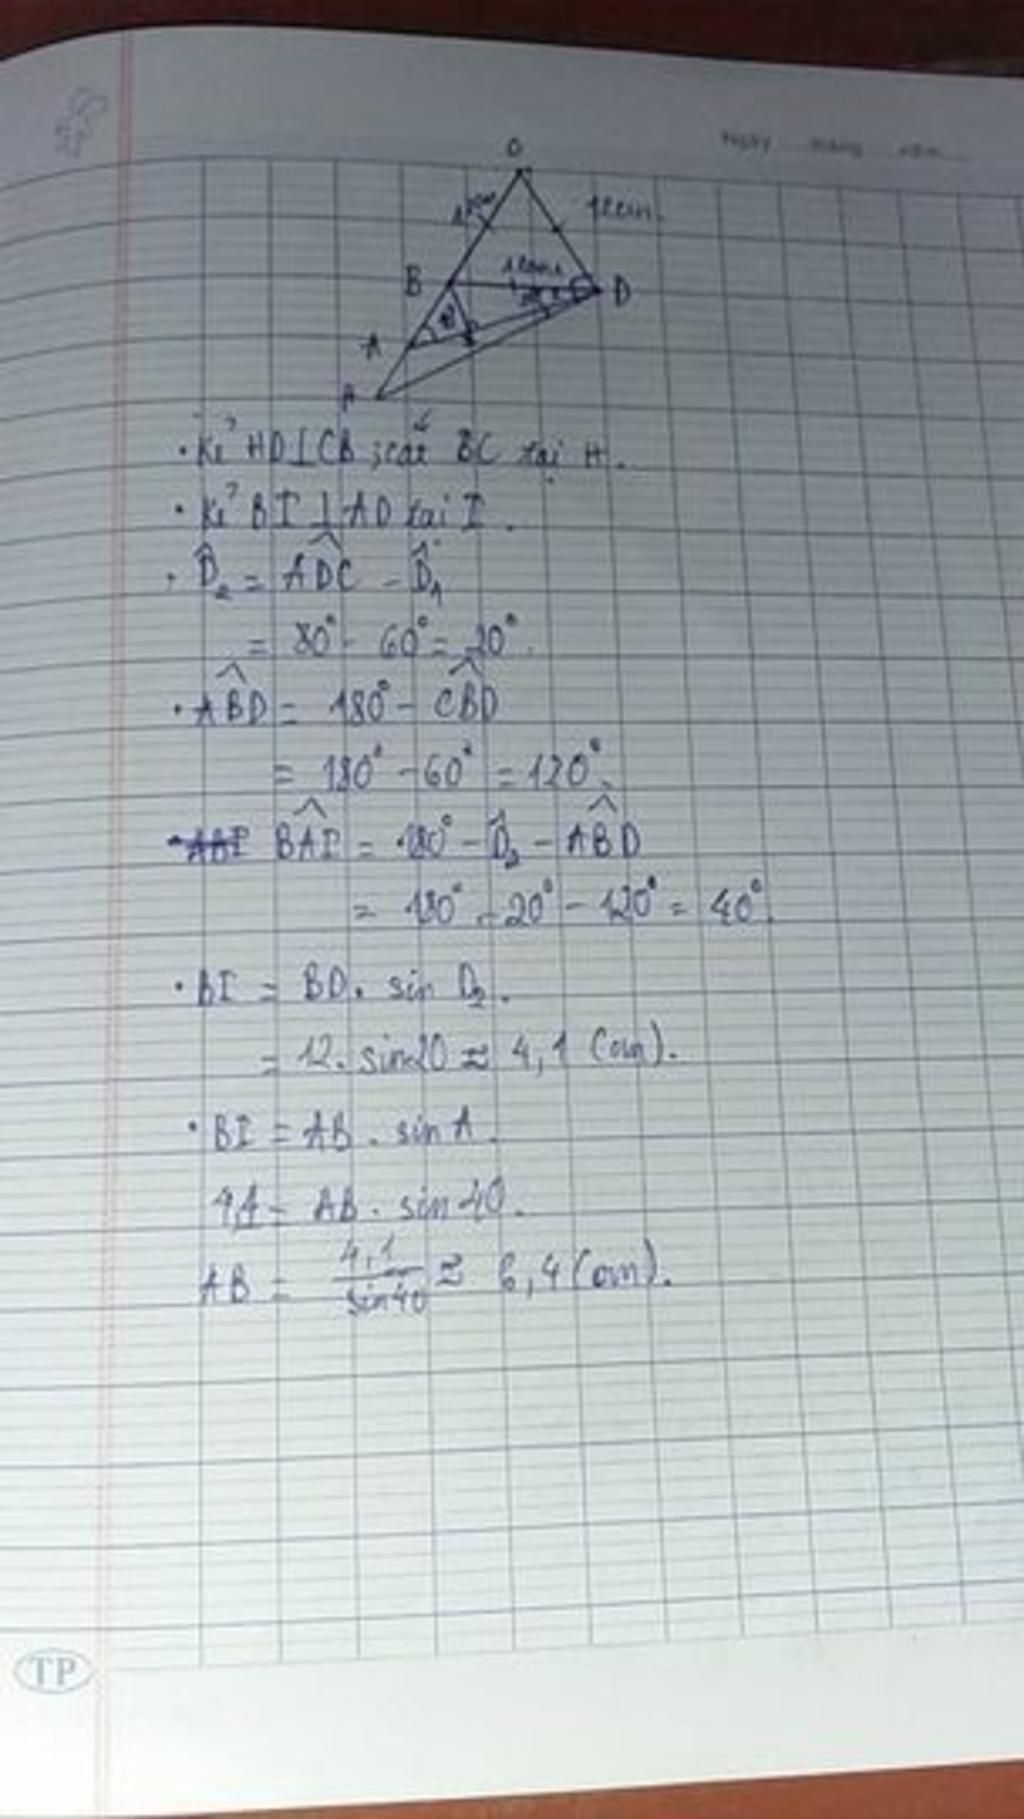 Ngày tháng năm
C
12cm
12cm
B
12cm
D
A
A
• Kẻ HD ⊥ CB ; cắt BC tại H.
• Kẻ BI ⊥ AD tại I.
• D̂₂ = ADC^ - D̂₁
= 80° - 60° = 20°.
• ABD^ = 180° - CBD^
= 180° - 60° = 120°.
• BAI^ = 180° - D̂₂ - ABD^
= 180° - 20° - 120° = 40°.
• BI = BD. sin D₂.
= 12. sin 20 ≈ 4,1 (cm).
• BI = AB . sin A.
4,1 = AB . sin 40.
AB = 4,1 / sin 40 ≈ 6,4 (cm).
TP